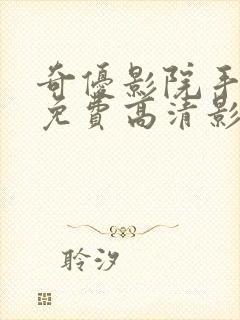 奇優影院手
免費高清影
聆汐